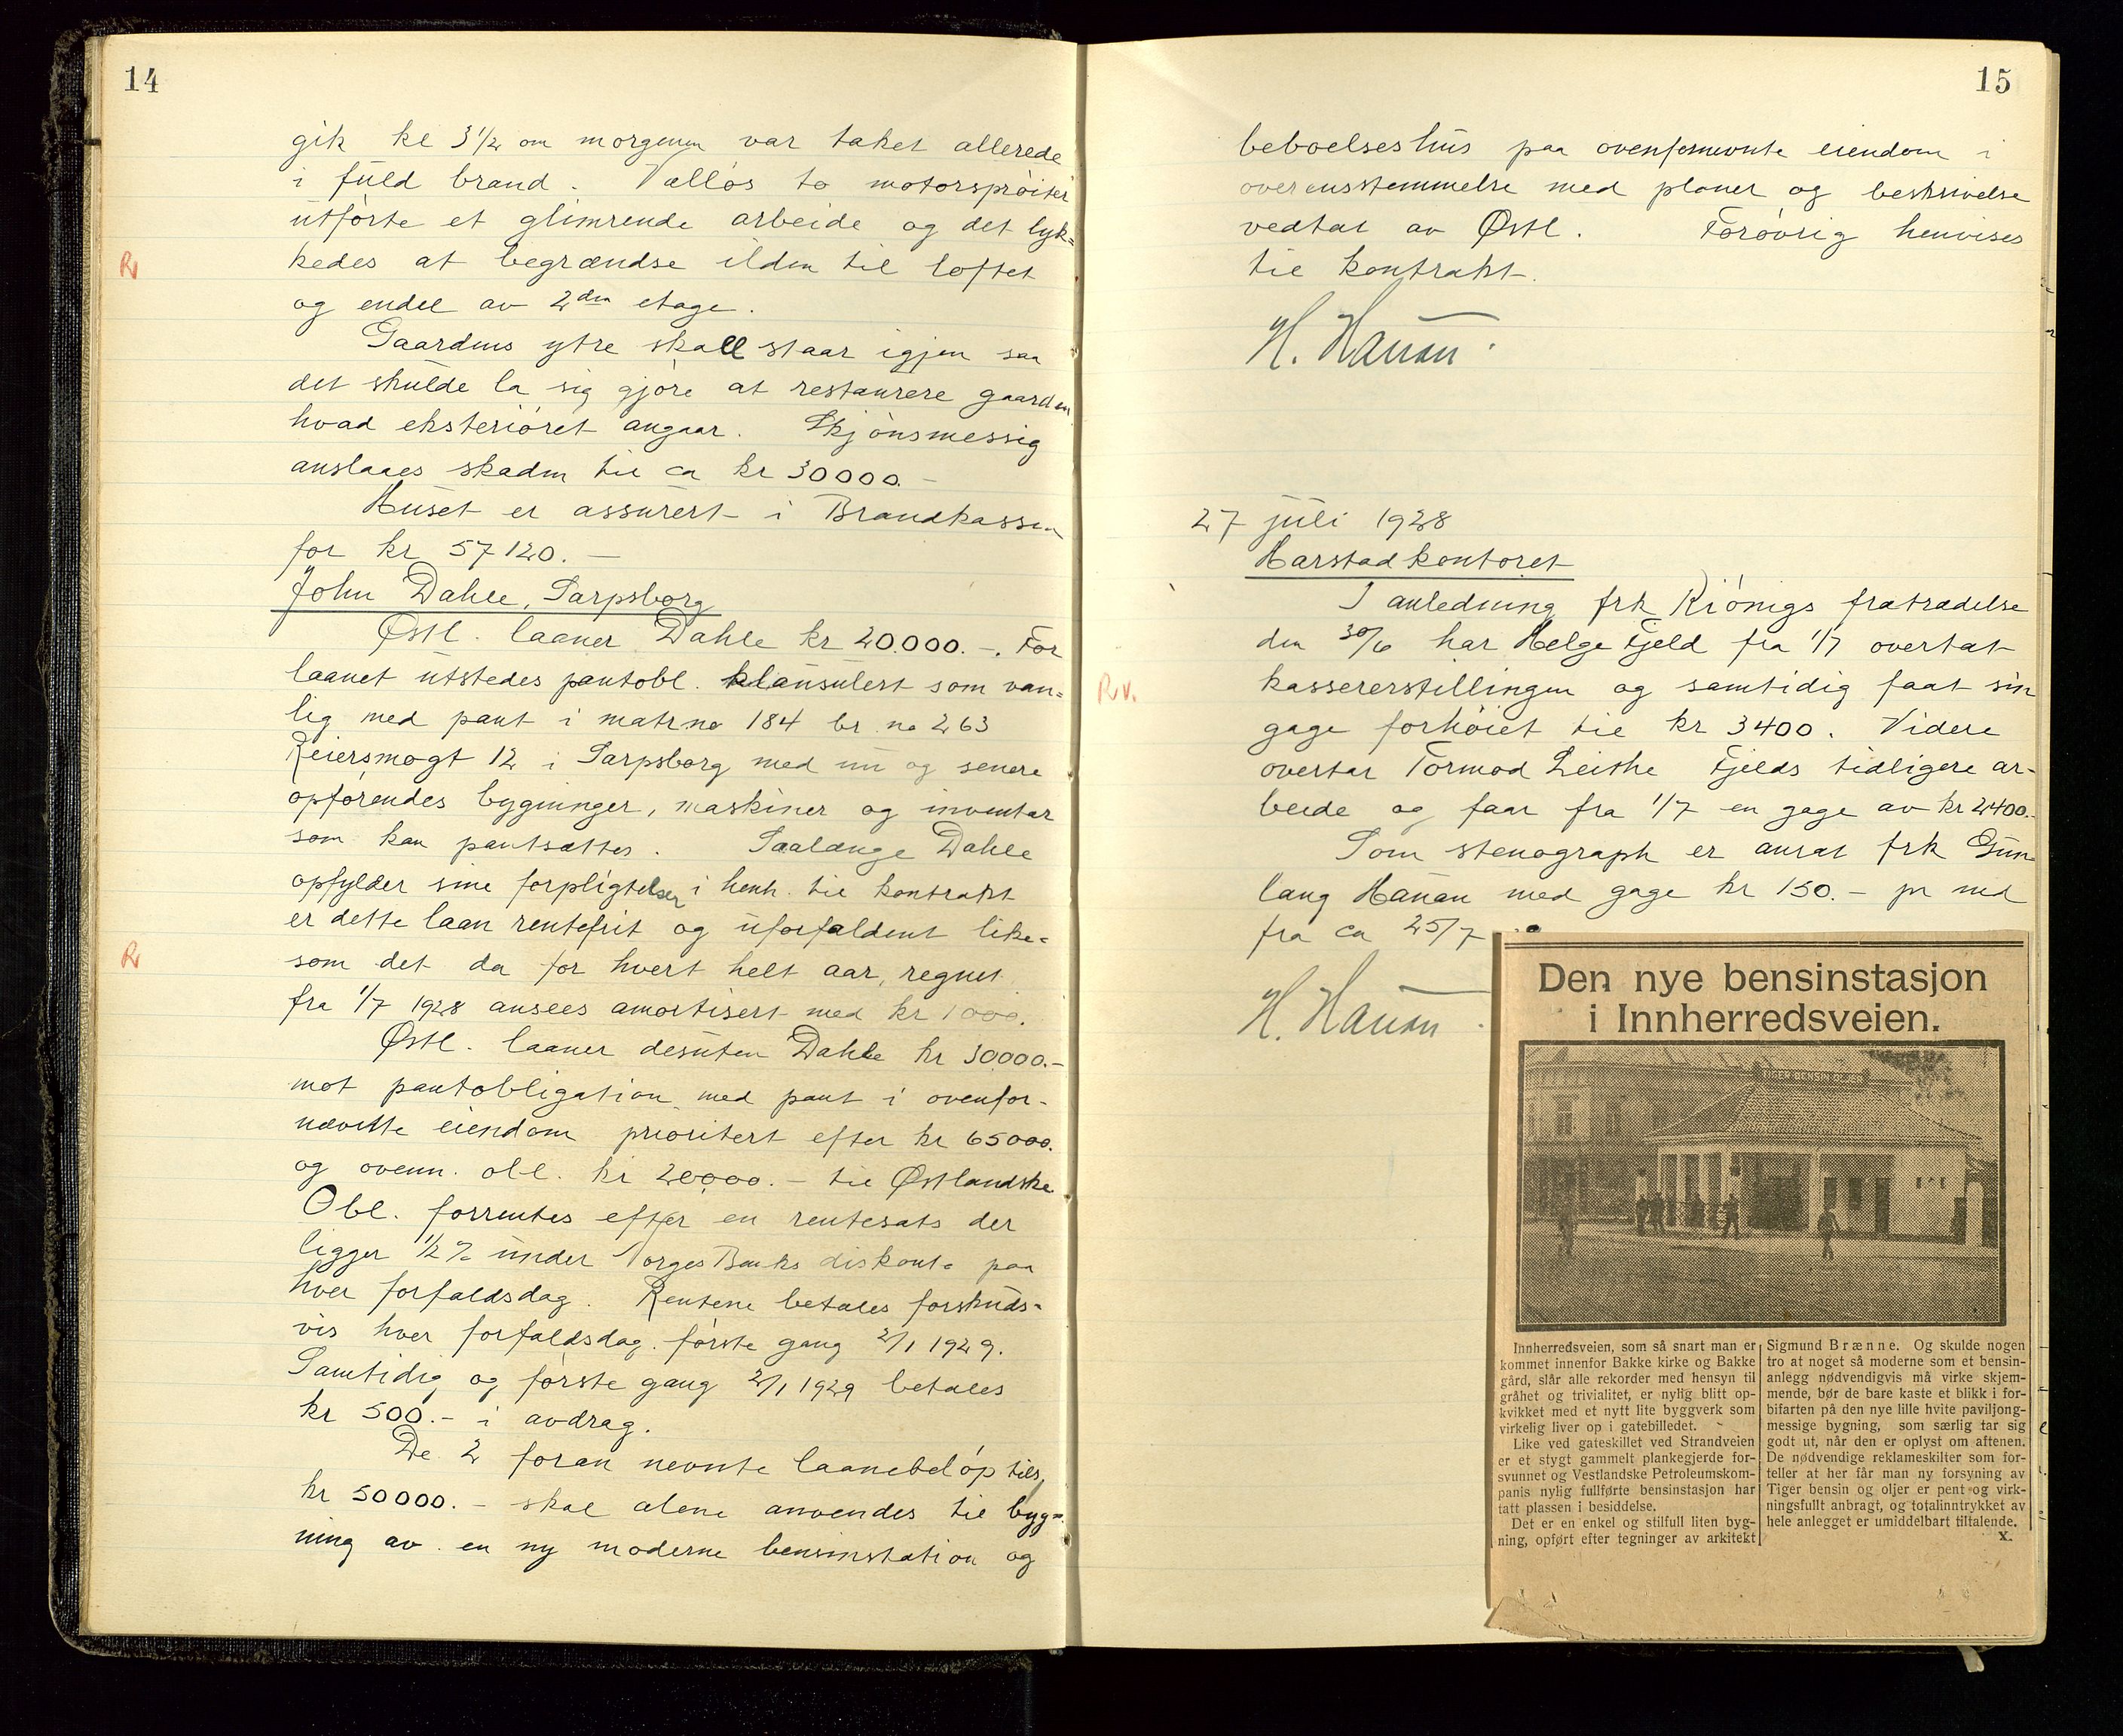 14
gik kl 3½ om morgenen var taket allerede
i fuld brand. Valløs to motorsprøiter
utførte et glimrende arbeide og det lyk=
kedes at begrændse ilden til loftet
R
og endel av 2den etage.
Gaardens ytre skall staar igjen saa
det skulde la sig gjøre at restaurere gaarden
hvad eksteriøret angaar. Skjønsmessig
anslaaes skaden til ca kr 30000.-
Huset er assurert i Brandkassen
for kr 57120.—
John Dahle, Sarpsborg
Østl. laaner Dahle kr 20.000.-. For
laanet utstedes pantobl. klausulert som van=
lig med pant i matr no 184 br. no 263
Reiersmogt 12 i Sarpsborg med nu og senere
opførendes bygninger, maskiner og inventar
som kan pantsættes. Saalænge Dahle
opfylder sine forpligtelser i henh. til kontrakt
er dette laan rentefrit og uforfaldent like=
R
som det da for hvert helt aar, regnet
fra 1/7 1928 ansees amortisert med kr 1000.
Østl. laaner desuten Dahle kr 30000.-
mot pantobligation med pant i ovenfor-
nævnte eiendom prioritert efter kr 65000.
og ovenn. obl. kr 20000.- til Østlandske
Obl. forrentes efter en rentesats der
ligger ½% under Norges Banks diskonto paa
hver forfaldsdag. Rentene betales forskuds-
vis hver forfaldsdag. første gang 2/1 1929.
Samtidig og første gang 2/1 1929 betales
kr 500.- i avdrag.
De 2 foran nevnte laanebeløp tils,
kr 50000.- skal alene anvendes til byg=
ning av en ny moderne bensinstation og
15
beboelseshus paa ovenfornevnte eiendom i
overensstemmelse med planer og beskrivelse
vedtat av Østl. Forøvrig henvises
til kontrakt.
H. Hauan
27 juli 1928
Harstadkontoret
I anledning frk Kiönigs fratrædelse
den 30/6 har Helge Fjeld fra 1/7 overtat
R.v.
kassererstillingen og samtidig faat sin
gage forhøiet til kr 3400. Videre
overtar Tormod Leithe Fjelds tidligere ar-
beide og faar fra 1/7 en gage av kr 2400.-
Som stenograph er ansat frk Gun-
laug Hauan med gage kr 150.- pr md
fra ca 25/7
H. Hauan
Den nye bensinstasjon
i Innherredsveien.
TIGER BENSIN OLJER
Innherredsveien, som så snart man er
kommet innenfor Bakke kirke og Bakke
gård, slår alle rekorder med hensyn til
gråhet og trivialitet, er nylig blitt op-
kvikket med et nytt lite byggverk som
virkelig liver op i gatebilledet.
Like ved gateskillet ved Strandveien
er et stygt gammelt plankegjerde for-
svunnet og Vestlandske Petroleumskom-
panis nylig fullførte bensinstasjon har
tatt plassen i besiddelse.
Det er en enkel og stilfull liten byg-
ning, opført efter tegninger av arkitekt
Sigmund Brænne. Og skulde nogen
tro at noget så moderne som et bensin-
anlegg nødvendigvis må virke skjem-
mende, bør de bare kaste et blikk i for-
bifarten på den nye lille hvite paviljong-
messige bygning, som særlig tar sig
godt ut, når den er oplyst om aftenen.
De nødvendige reklameskilter som for-
teller at her får man ny forsyning av
Tiger bensin og oljer er pent og virk-
ningsfullt anbragt, og totalinntrykket av
hele anlegget er umiddelbart tiltalende.
X.